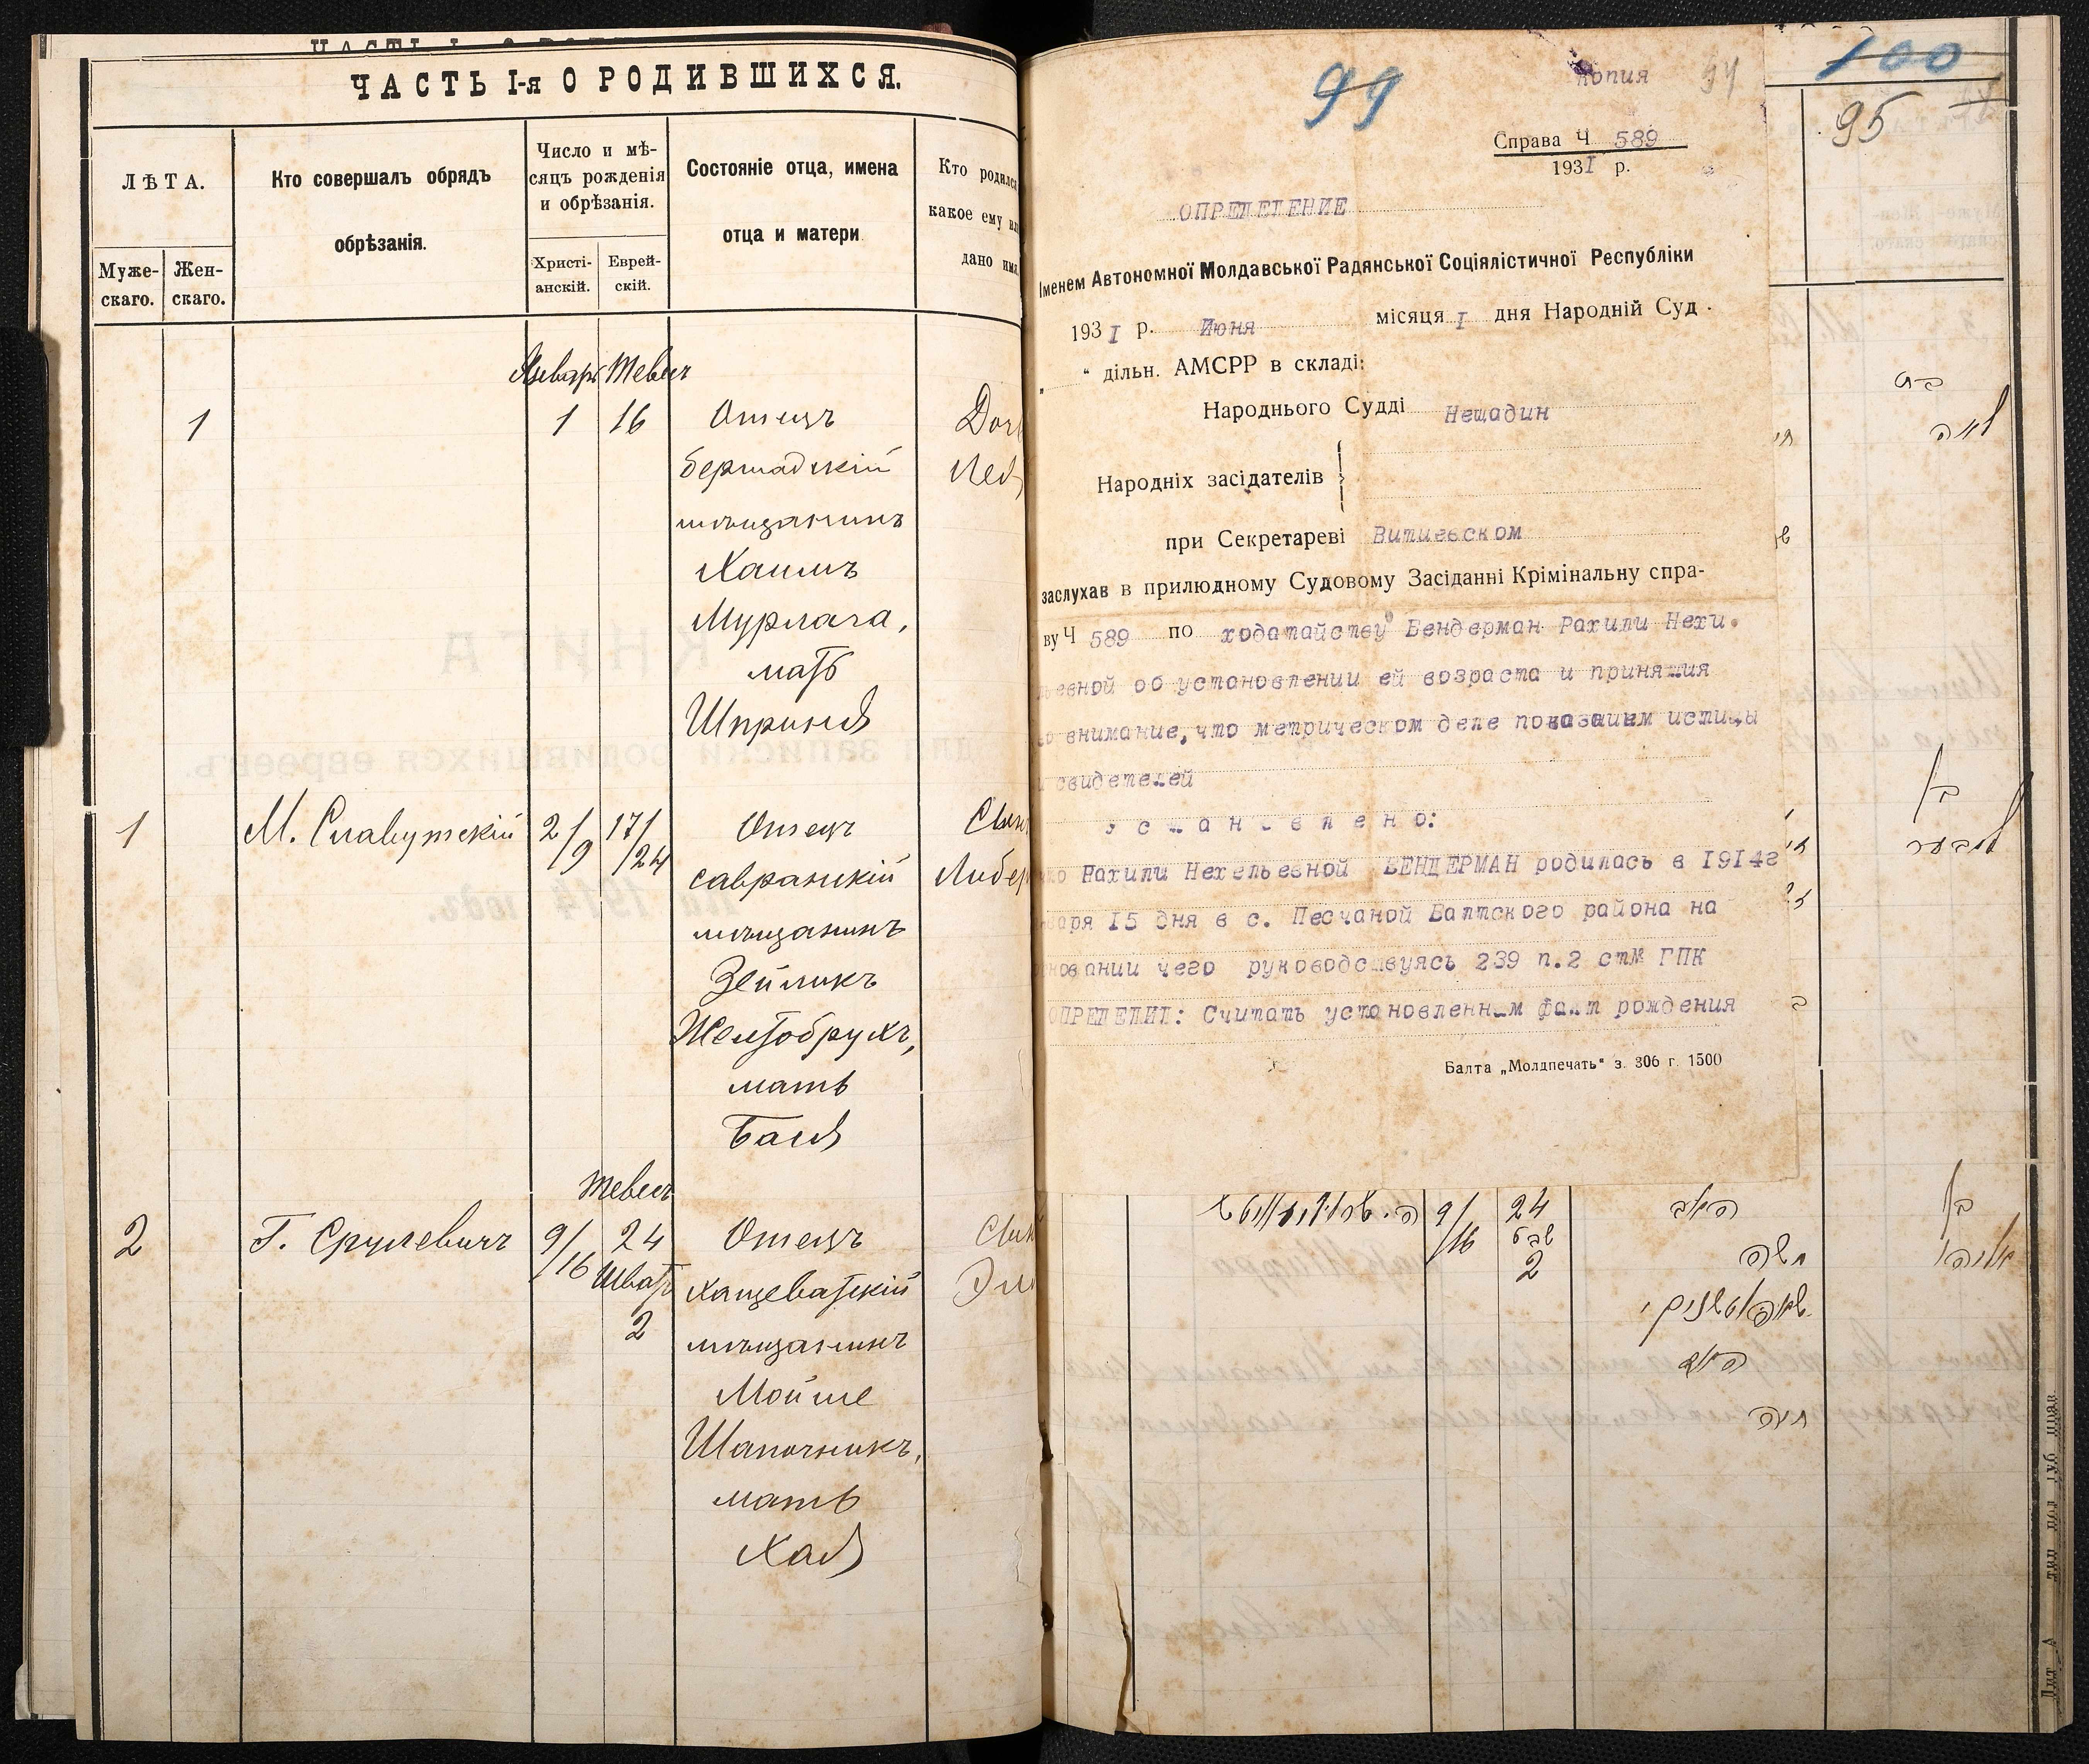 ЧАСТЬ I-я О РОДИВШИХСЯ.
ЛѢТА.
Муже-
скаго.
Жен-
скаго.
Кто совершалъ обрядъ
обрѣзанія.
Число и мѣ-
сяцъ рожденія
и обрѣзанія.
Христі-
анскій.
Еврей-
скій.
Состояніе отца, имена
отца и матери
Кто родился
какое ему
дано имя
Январь Тевесъ
1 1 16 Отецъ
бершадскій
мѣщанинъ
Хаимъ
Мурлага,
мать
Шпринця
1 М. Славутскій 2/9 17/24 Отецъ
савранскій
мѣщанинъ
Зейликъ
Желтобрухъ,
мать
Бася
Тевесъ
2 Г. Срулевичъ 9/16 24 Отецъ
Шватъ хащеватскій
2 мѣщанинъ
Мойше
Шапочникъ,
мать
Хая
99
копия 94
Справа Ч 589
1931 р.
ОПРЕДЕЛЕНИЕ
Іменем Автономної Молдавської Радянської Соціялістичної Республіки
1931 р. Июня місяця I дня Народній Суд.
" дільн. АМСРР в складі:
Народнього Судді Нещадин
Народніх засідателів
при Секретареві Витиевском
заслухав в прилюдному Судовому Засіданні Крімінальну спра-
ву Ч 589 по ходатайству Бендерман Рахили Нехи.
льевной об установлении ей возраста и принятия
во внимание, что метрическом деле показаием истицы
и свидетелей
у с т а н о в л е н о:
что Рахили Нехельевной БЕНДЕРМАН родилась в 1914г
января 15 дня в с. Песчаной Балтского района на
основании чего руководствуясь 239 п.2 стМ ГПК
ОПРЕДЕЛИЛ: Считать установленным факт рождения
Балта „Молдпечать“ з. 306 г. 1500
100
95
בת
בן
9/16 24 האב
שבט
2 משה
האם
חיה
בן